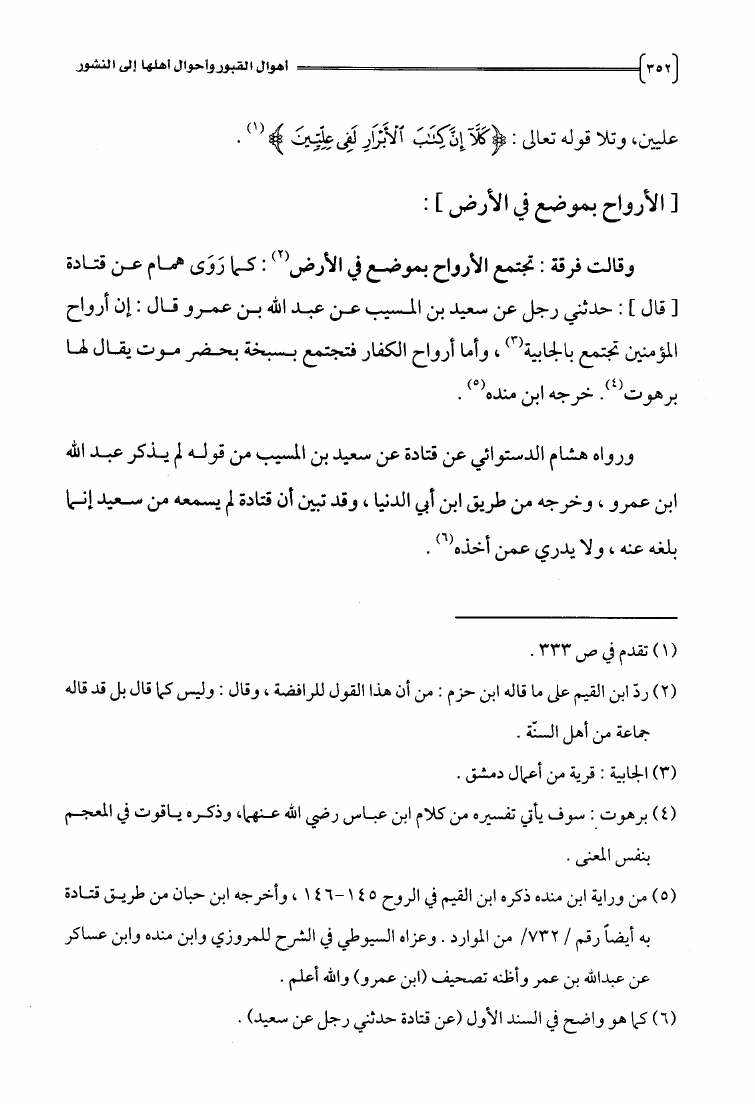 [٣٥٢] أهوال القبور وأحوال أهلها إلى النشور
عليين، وتلا قوله تعالى : ﴿ كَلَّآ إِنَّ كِتَٰبَ ٱلْأَبْرَارِ لَفِى عِلِّيِّينَ ﴾ (١) .
[ الأرواح بموضع في الأرض ] :
وقالت فرقة : تجتمع الأرواح بموضع في الأرض(٢) : كما رَوَى همام عن قتادة
[ قال ] : حدثني رجل عن سعيد بن المسيب عن عبد الله بن عمرو قال : إن أرواح
المؤمنين تجتمع بالجابية(٣) ، وأما أرواح الكفار فتجتمع بسبخة بحضر موت يقال لها
برهوت(٤). خرجه ابن منده(٥) .
ورواه هشام الدستوائي عن قتادة عن سعيد بن المسيب من قوله لم يذكر عبد الله
ابن عمرو ، وخرجه من طريق ابن أبي الدنيا ، وقد تبين أن قتادة لم يسمعه من سعيد إنما
بلغه عنه ، ولا يدري عمن أخذه(٦) .
(١) تقدم في ص ٣٣٣ .
(٢) ردّ ابن القيم على ما قاله ابن حزم : من أن هذا القول للرافضة ، وقال : وليس كما قال بل قد قاله
جماعة من أهل السنّة .
(٣) الجابية : قرية من أعمال دمشق .
(٤) برهوت : سوف يأتي تفسيره من كلام ابن عباس رضي الله عنهما، وذكره ياقوت في المعجم
بنفس المعنى .
(٥) من وراية ابن منده ذكره ابن القيم في الروح ١٤٥-١٤٦ ، وأخرجه ابن حبان من طريق قتادة
به أيضاً رقم / ٧٣٢/ من الموارد . وعزاه السيوطي في الشرح للمروزي وابن منده وابن عساكر
عن عبدالله بن عمر وأظنه تصحيف (ابن عمرو) والله أعلم .
(٦) كما هو واضح في السند الأول (عن قتادة حدثني رجل عن سعيد) .